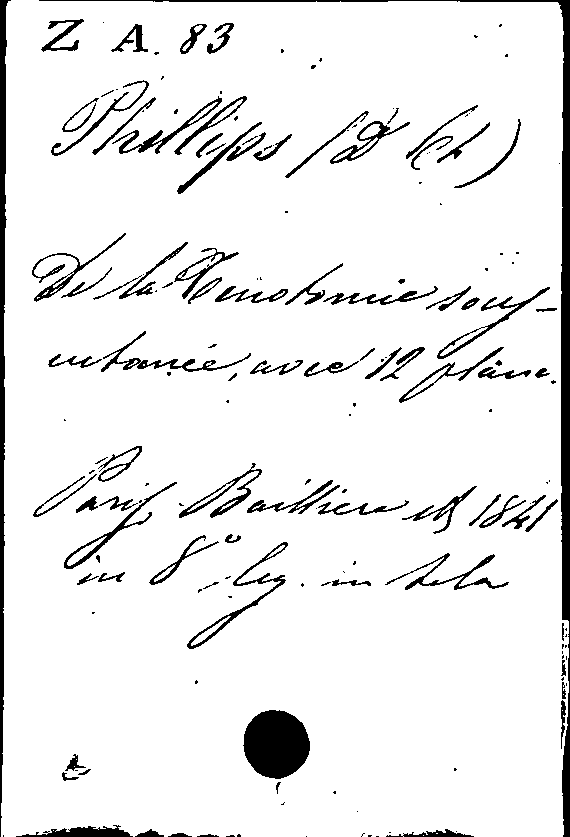 Z A. 83
Phillips (D Ch)
De la Tenotomie sous-
cutanée, avec 12 planc.
Paris, Bailliere 1841
in 8° leg. in tela